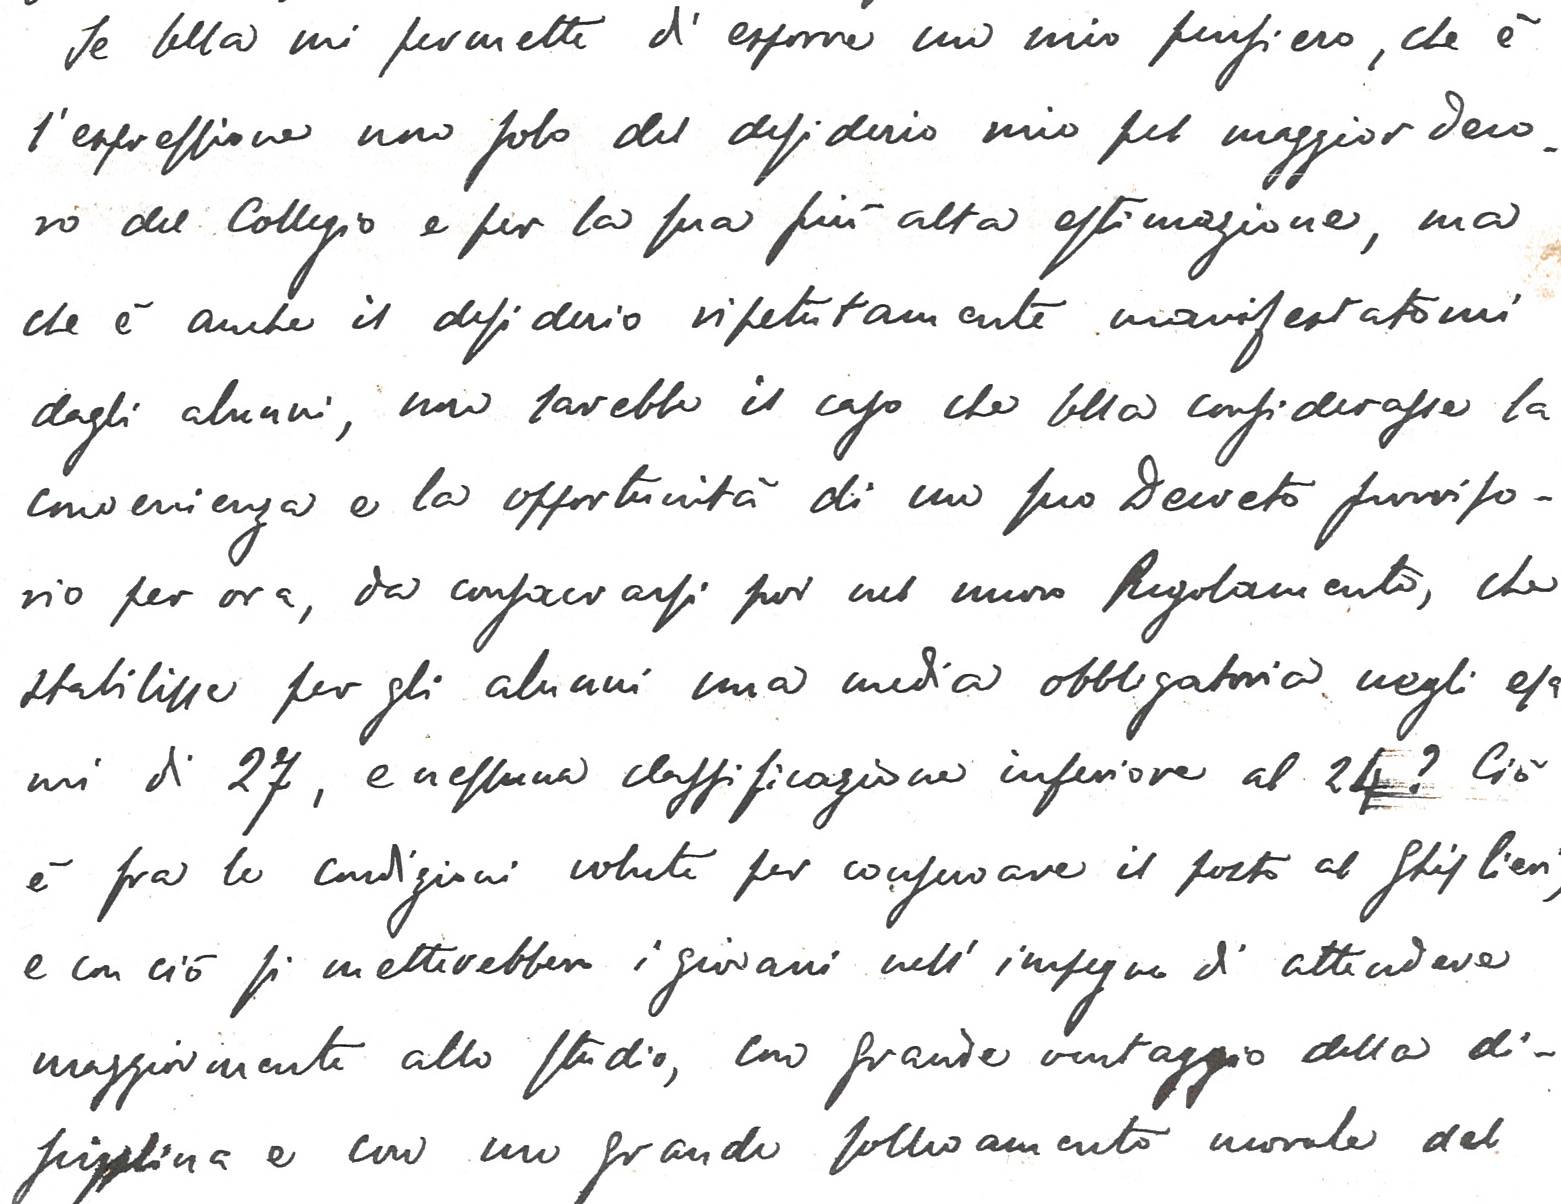 Se Ella mi permette di esporre un mio pensiero, che è
l'espressione non solo del desiderio mio pel maggior deco-
ro del Collegio e per la sua più alta estimazione, ma
che è anche il desiderio ripetutamente manifestatomi
dagli alunni, non sarebbe il caso che Ella considerasse la
convenienza e la opportunità di un suo Decreto provviso-
rio per ora, da consacrarsi poi nel nuovo Regolamento, che
stabilisse per gli alunni una media obbligatoria negli esa
mi di 27, e nessuna classificazione inferiore al 24? Ciò
è fra le condizioni volute per conservare il posto al Ghislieri,
e con ciò si metterebbero i giovani nell'impegno di attendere
maggiormente allo studio, con grande vantaggio della di-
sciplina e con un grande sollevamento morale del